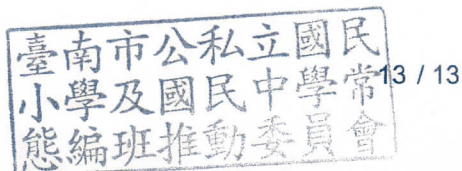 臺南市公私立國民
小學及國民中學常
態編班推動委員會
13 / 13